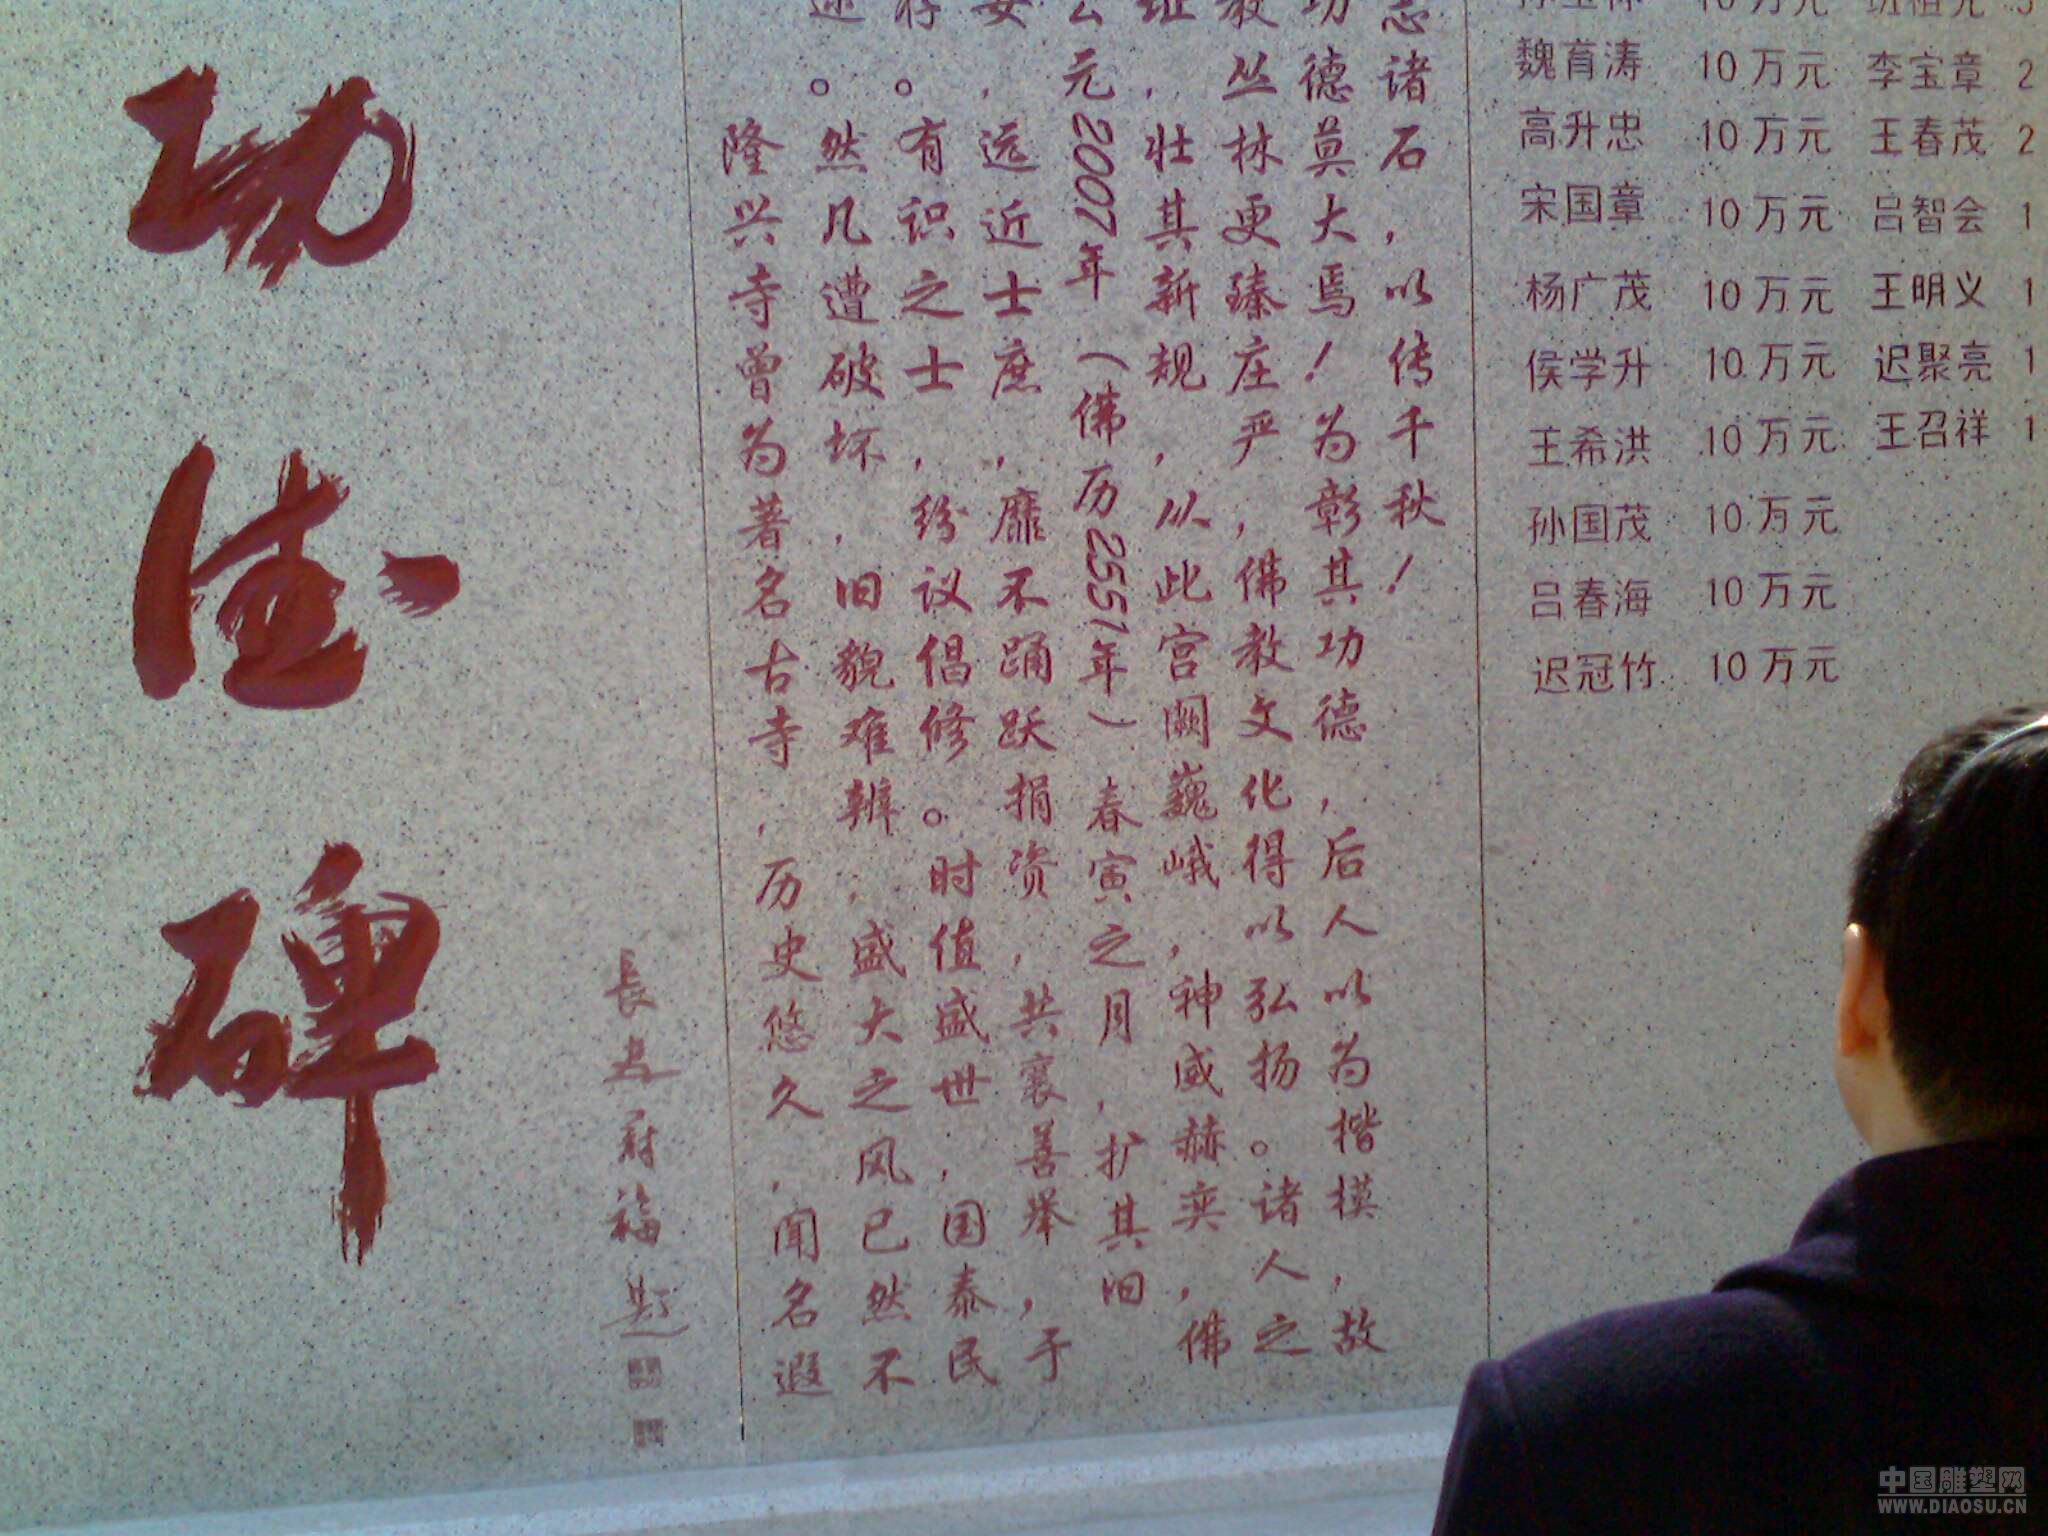 功德碑
隆兴寺曾为著名古寺，历史悠久，闻名遐
迩。然几遭破坏，旧貌难辨，盛大之风已然不
存。有识之士，纷议倡修。时值盛世，国泰民
安，远近士庶，靡不踊跃捐资，共襄善举，于
公元2007年（佛历2551年）春寅之月，扩其旧
址，壮其新规，从此宫阙巍峨，神威赫奕，佛
教丛林更臻庄严，佛教文化得以弘扬。诸人之
功德莫大焉！为彰其功德，后人以为楷模，故
志诸石，以传千秋！
魏育涛 10万元 李宝章 2
高升忠 10万元 王春茂 2
宋国章 10万元 吕智会 1
杨广茂 10万元 王明义 1
侯学升 10万元 迟聚亮 1
王希洪 10万元 王召祥 1
孙国茂 10万元
吕春海 10万元
迟冠竹 10万元
中国雕塑网
WWW.DIAOSU.CN